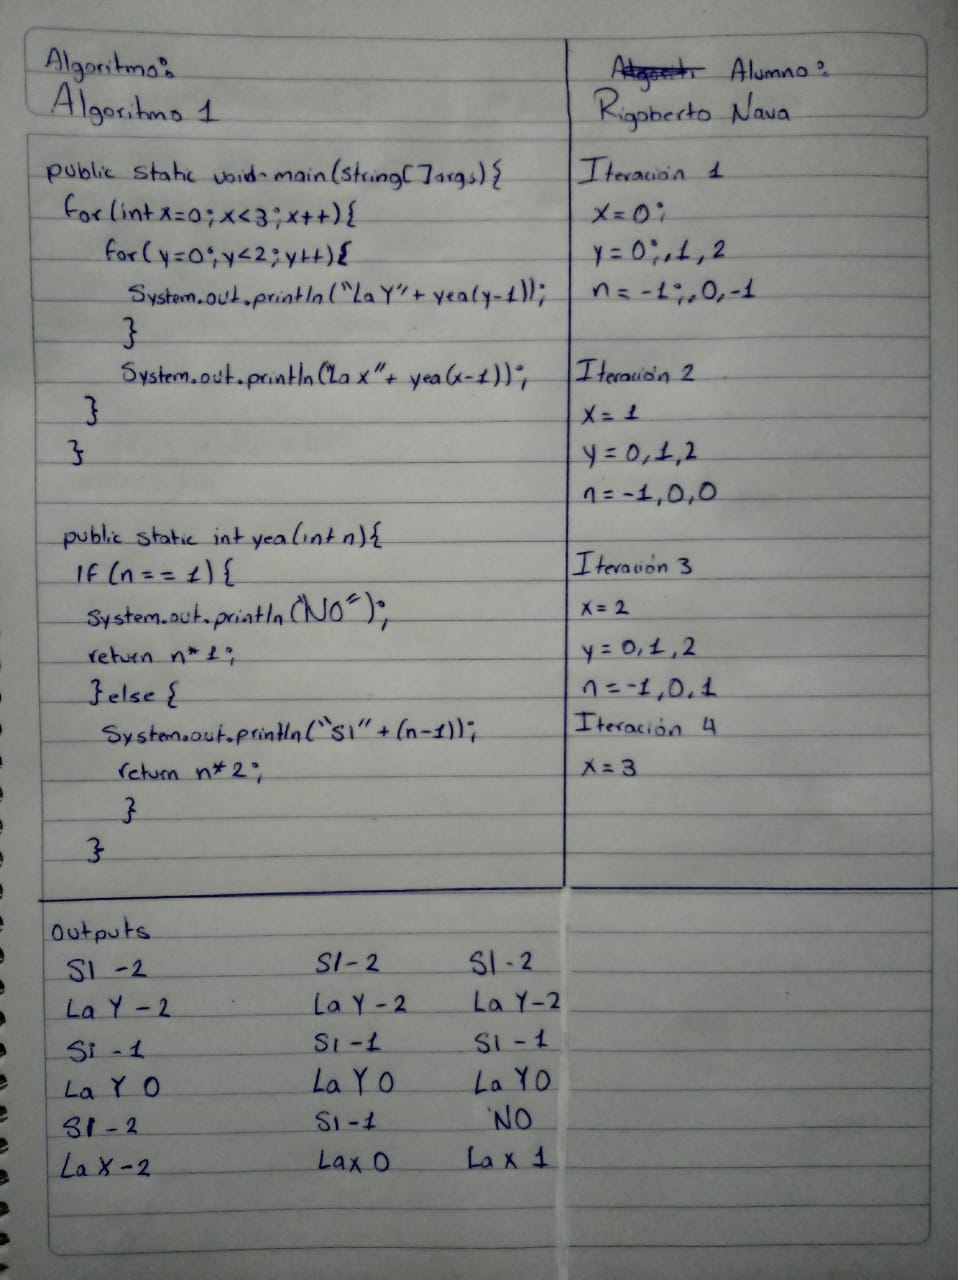 Algoritmo:
Algoritmo 1
Alumno:
Rigoberto Nava
public static void main(string[]args){
for(int x=0;x<3;x++){
for(y=0;y<2;y++){
System.out.println("La Y"+ yea(y-1));
}
System.out.println("La x"+ yea(x-1));
}
}
public static int yea(int n){
If (n==1){
System.out.println("NO");
return n*1;
}else {
System.out.println("SI"+(n-1));
return n*2;
}
}
Iteración 1
x=0;
y=0;,1,2
n=-1;,0,-1
Iteración 2
x=1
y=0,1,2
n=-1,0,0
Iteración 3
x=2
y=0,1,2
n=-1,0,1
Iteración 4
x=3
Outputs
SI -2 SI-2 SI-2
La Y -2 La Y -2 La Y-2
Si -1 SI -1 SI -1
La Y 0 La Y 0 La Y 0
SI -2 SI -1 NO
La X -2 La x 0 La x 1